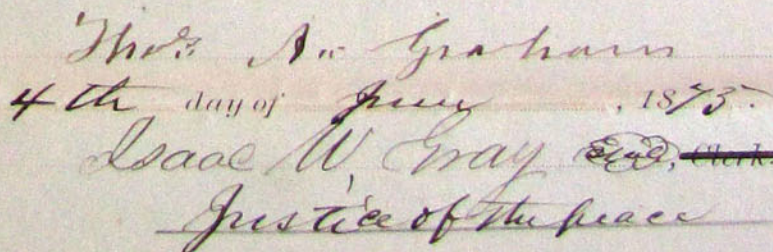 Thos. A. Graham
4th day of June, 1875.
Isaac W. Gray Seal, Clerk.
Justice of the peace